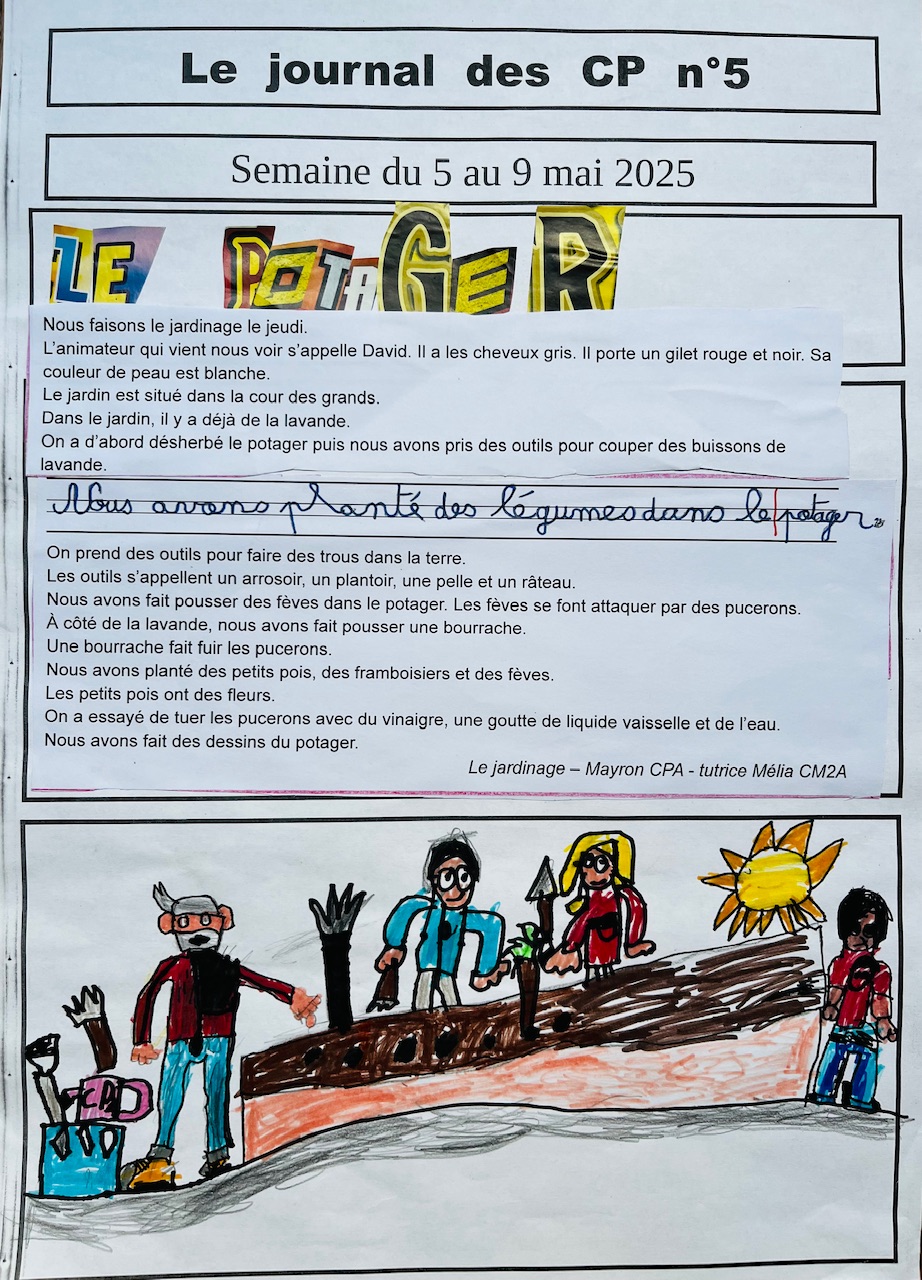 Le journal des CP n°5
Semaine du 5 au 9 mai 2025
LE POTAGER
Nous faisons le jardinage le jeudi.
L'animateur qui vient nous voir s'appelle David. Il a les cheveux gris. Il porte un gilet rouge et noir. Sa
couleur de peau est blanche.
Le jardin est situé dans la cour des grands.
Dans le jardin, il y a déjà de la lavande.
On a d'abord désherbé le potager puis nous avons pris des outils pour couper des buissons de
lavande.
Nous avons planté des légumes dans le potager.
On prend des outils pour faire des trous dans la terre.
Les outils s'appellent un arrosoir, un plantoir, une pelle et un râteau.
Nous avons fait pousser des fèves dans le potager. Les fèves se font attaquer par des pucerons.
À côté de la lavande, nous avons fait pousser une bourrache.
Une bourrache fait fuir les pucerons.
Nous avons planté des petits pois, des framboisiers et des fèves.
Les petits pois ont des fleurs.
On a essayé de tuer les pucerons avec du vinaigre, une goutte de liquide vaisselle et de l'eau.
Nous avons fait des dessins du potager.
Le jardinage – Mayron CPA - tutrice Mélia CM2A